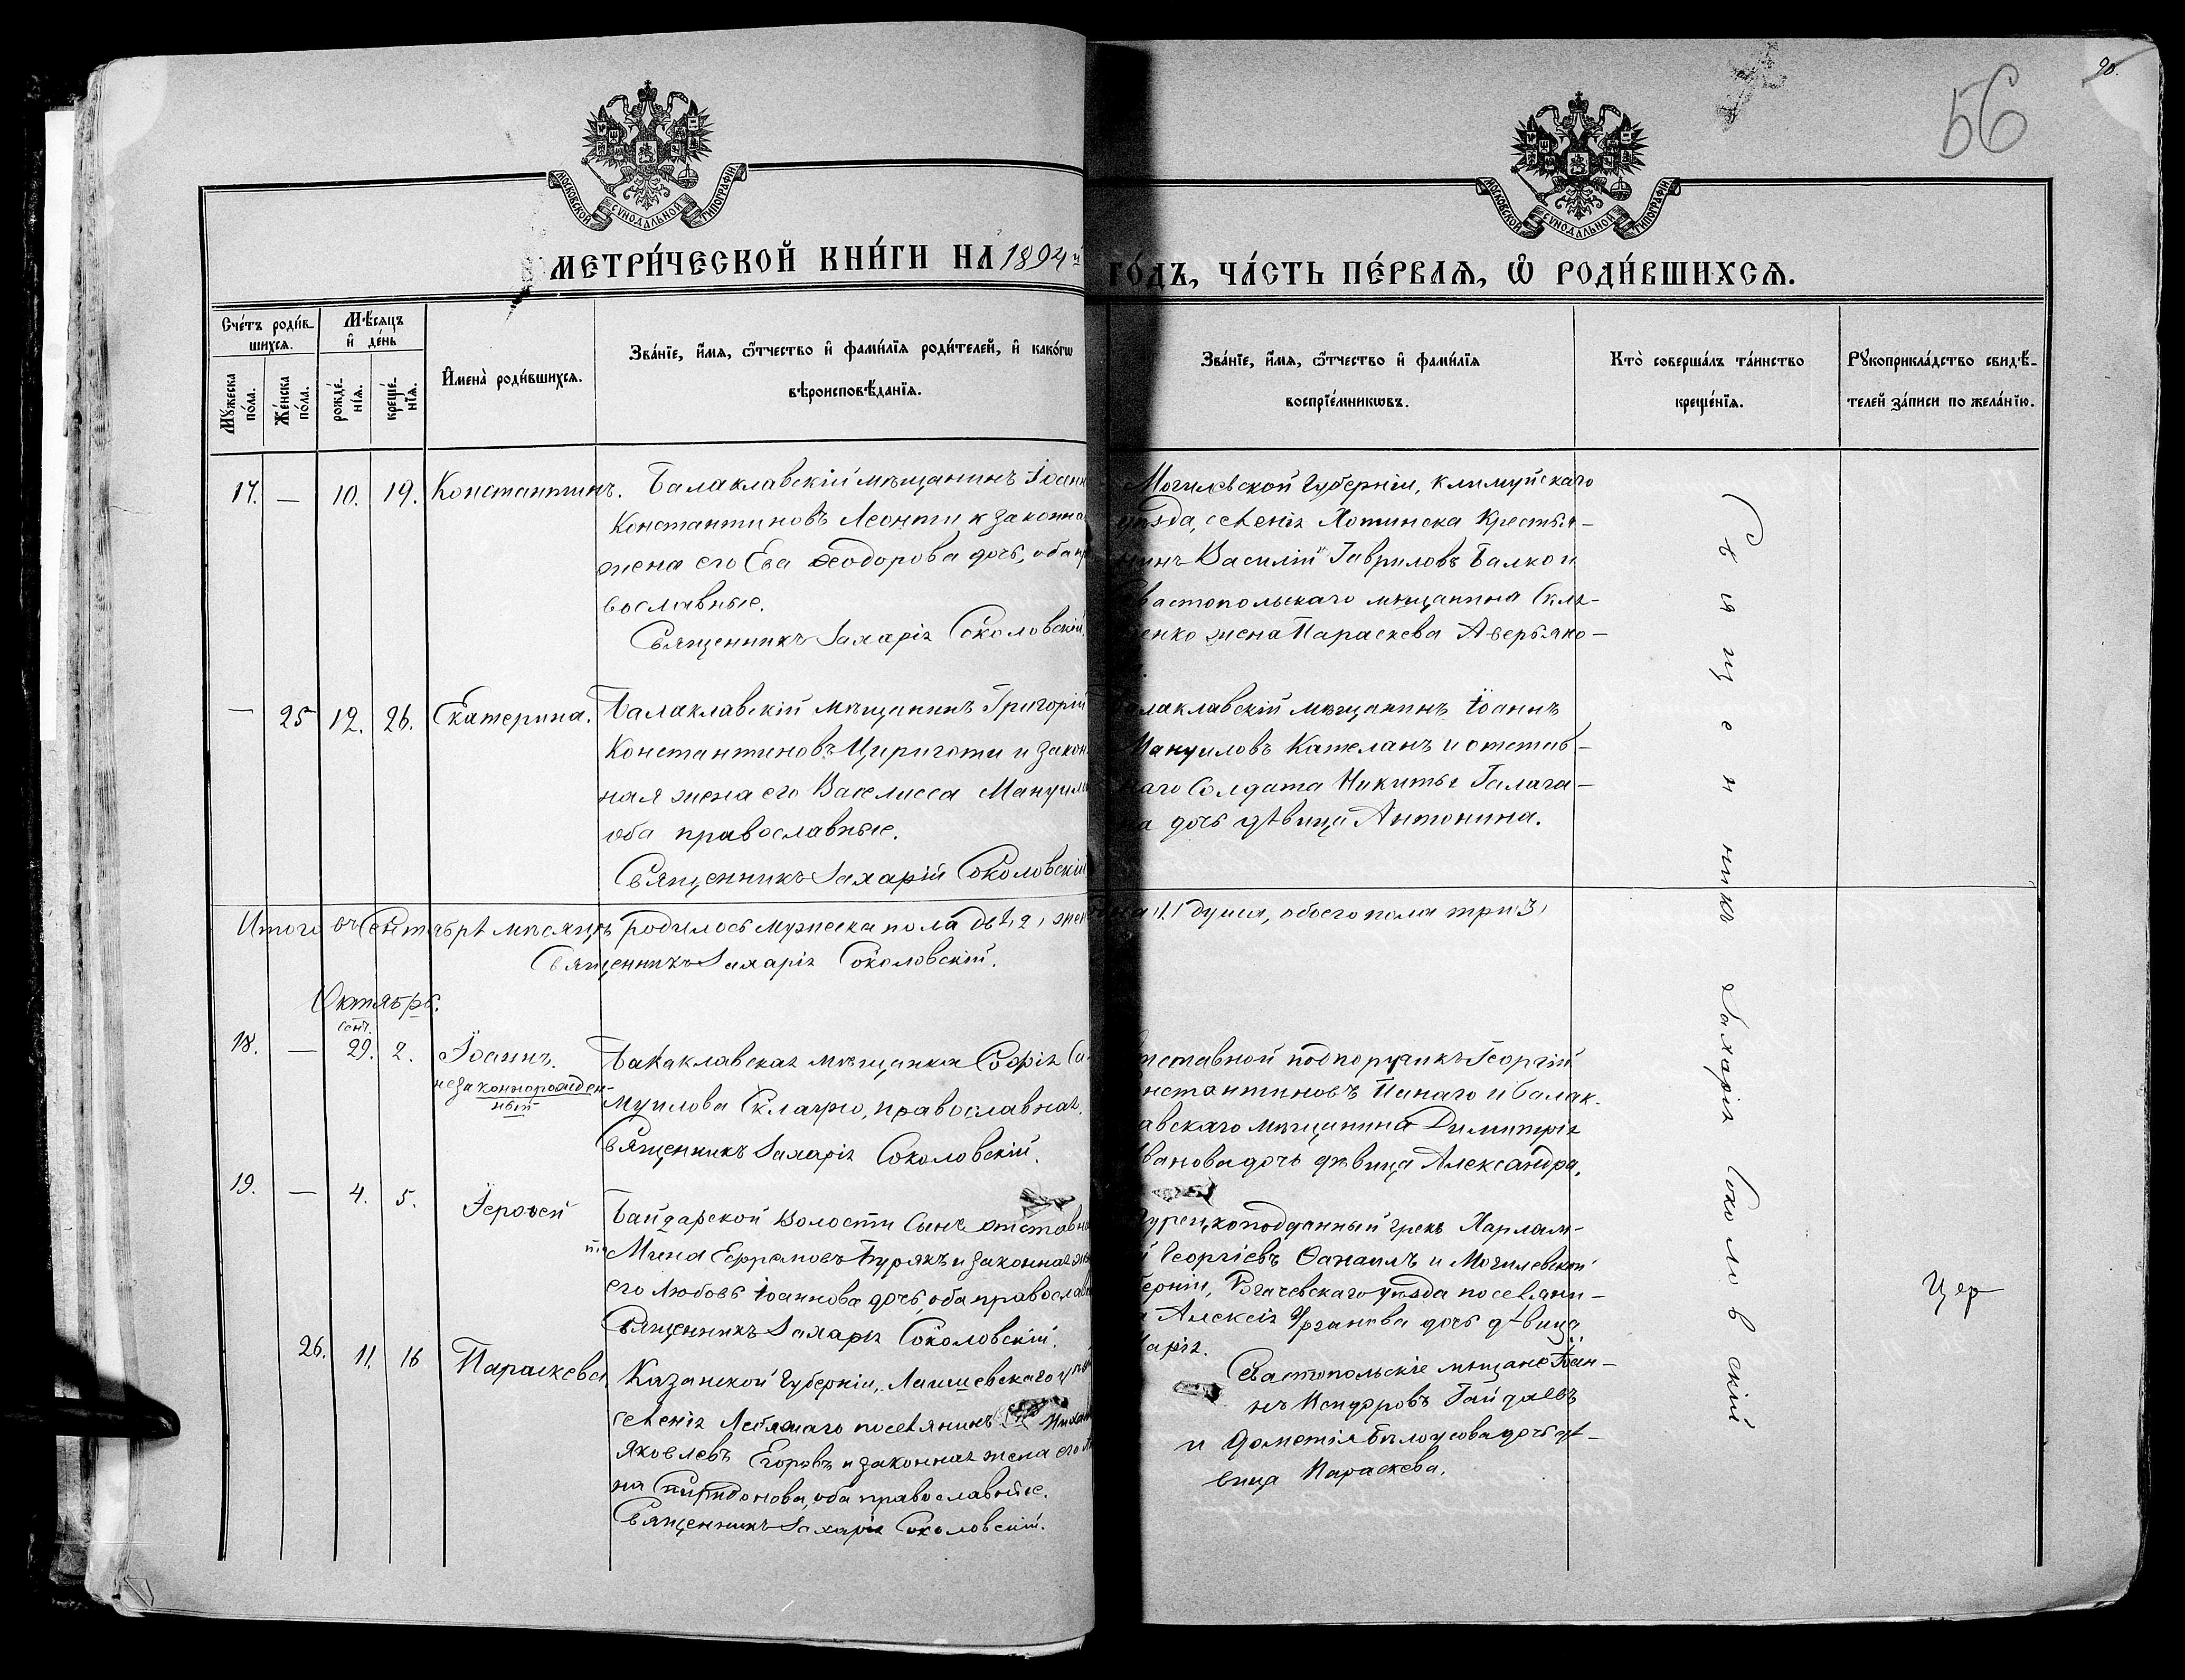 90.
56
МОСКОВСКОЙ СѴНОДАЛЬНОЙ ТИПОГРАФІИ.
МОСКОВСКОЙ СѴНОДАЛЬНОЙ ТИПОГРАФІИ.
МЕТРИ́ЧЕСКОЙ КНИ́ГИ НА 1894й
ГО́ДЪ, ЧА́СТЬ ПЕ́РВАЯ, Ѿ РОДИ́ВШИХСЯ.
Сче́тъ роди́в-
шихся.
Мѣ́сяцъ
и҆ де́нь
Мꙋ́жеска
по́ла.
Же́нска
по́ла.
рожде́-
нїѧ.
креще́-
нїѧ.
И҆мена̀ роди́вшихся.
Зва́нїе, и҆́мя, ѻ҆́тчество и҆ фами́лїя роди́телей, и҆ како́гѡ
вѣроисповѣ́данїя.
Зва́нїе, и҆́мя, ѻ҆́тчество и҆ фами́лїя
воспрїе́мникѡвъ.
Кто̀ соверша́лъ та́инство
креще́нїя.
Рꙋкоприкла́дство свидѣ́-
телей за́писи по жела́нїю.
17. — 10. 19. Константинъ. Балаклавскій мѣщанинъ Іоанн
Константиновъ Леонти и законна
жена его Ева Ѳеодорова дочь, оба пр
вославные.
Священникъ Захарія Соколовскій.
Могилевской Губерніи, Климуйскаго
уѣзда, селенія Хотинска Крестья-
нинъ Василій Гавриловъ Балко и
вастопольскаго мѣщанина Скля-
ренко жена Параскева Аверьяно-
— 25 12. 26. Екатерина. Балаклавскій мѣщанинъ Григорій
Константиновъ Цириготи и закон
ная жена его Василисса Мануил
оба православные.
Священникъ Захарій Соколовскій
алаклавскій мѣщанинъ Іоаннъ
Мануиловъ Кателанъ и отстав-
наго Солдата Никиты Галага-
на дочь дѣвица Антонина.
Итого въ Сентябрѣ мѣсяцѣ родилось мужеска пола двѣ, 2, жен
на, 1, душа, обоего пола три, 3,
Священникъ Захарія Соколовскій.
Октябрь.
сент.
18. — 29. 2. Іоаннъ.
незаконнорожден-
ный
Балаклавская мѣщанка Софія Са
муилова Склагрю, православная.
Священникъ Захарія Соколовскій.
тставной подпоручикъ Георгій
нстантиновъ Панаго и балак-
авскаго мѣщанина Димитрія
ванова дочь дѣвица Александра.
19. — 4. 5. Іероѳей Байдарской Волости Сынъ отставн
Мина Ефремовъ Бурякъ и законная же
его Любовь Іоаннова дочь, оба православ
Священникъ Захарія Соколовскій.
Турецкоподданный грекъ Харлам-
й Георгіевъ Ѳанаилъ и Могилевской
берніи, Рогачевскаго уѣзда поселяни-
Алексія Урганова дочь дѣвица
арія.
Цер
26. 11. 16 Параскева. Казанской Губерніи, Лаишевскаго уѣз
селенія Лебяжаго поселянинъ Михаи
Яковлевъ Егоровъ и законная жена его
на Спиридонова, оба православные.
Священникъ Захарія Соколовскій.
Севастопольскіе мѣщане Іоан-
нъ Исидоровъ Гайдаевъ
и Дометія Бѣлоусова дочь дѣ-
вица Параскева.
Священникъ Захарія Соколовскій